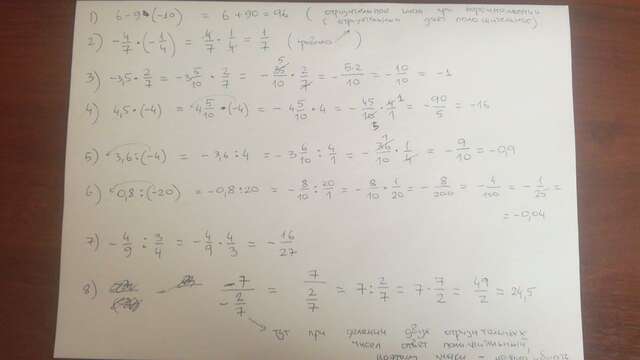 1) 6-9·(-10) = 6+90=96 (отрицательной знак при перемножении
отрицательных даёт положительное)
2) -4/7·(-1/4) = 4/7·1/4 = 1/7
3) -3,5·2/7 = -3 5/10·2/7 = -35/10·2/7 = -5·2/10 = -10/10 = -1
4) 4,5·(-4) = 4 5/10·(-4) = -45/10·4 = -45/10·4/1 = -90/5 = -16
5) 3,6÷(-4) = -3,6÷4 = -3 6/10÷4/1 = -36/10·1/4 = -9/10 = -0,9
6) 0,8÷(-20) = -0,8÷20 = -8/10÷20/1 = -8/10·1/20 = -8/200 = -4/100 = -1/25 =
= -0,04
7) -4/9÷3/4 = -4/9·4/3 = -16/27
8) -7/-2/7 = 7/2/7 = 7÷2/7 = 7·7/2 = 49/2 = 24,5
тут при делении двух отрицательных
чисел ответ положительный,
поэтому минус